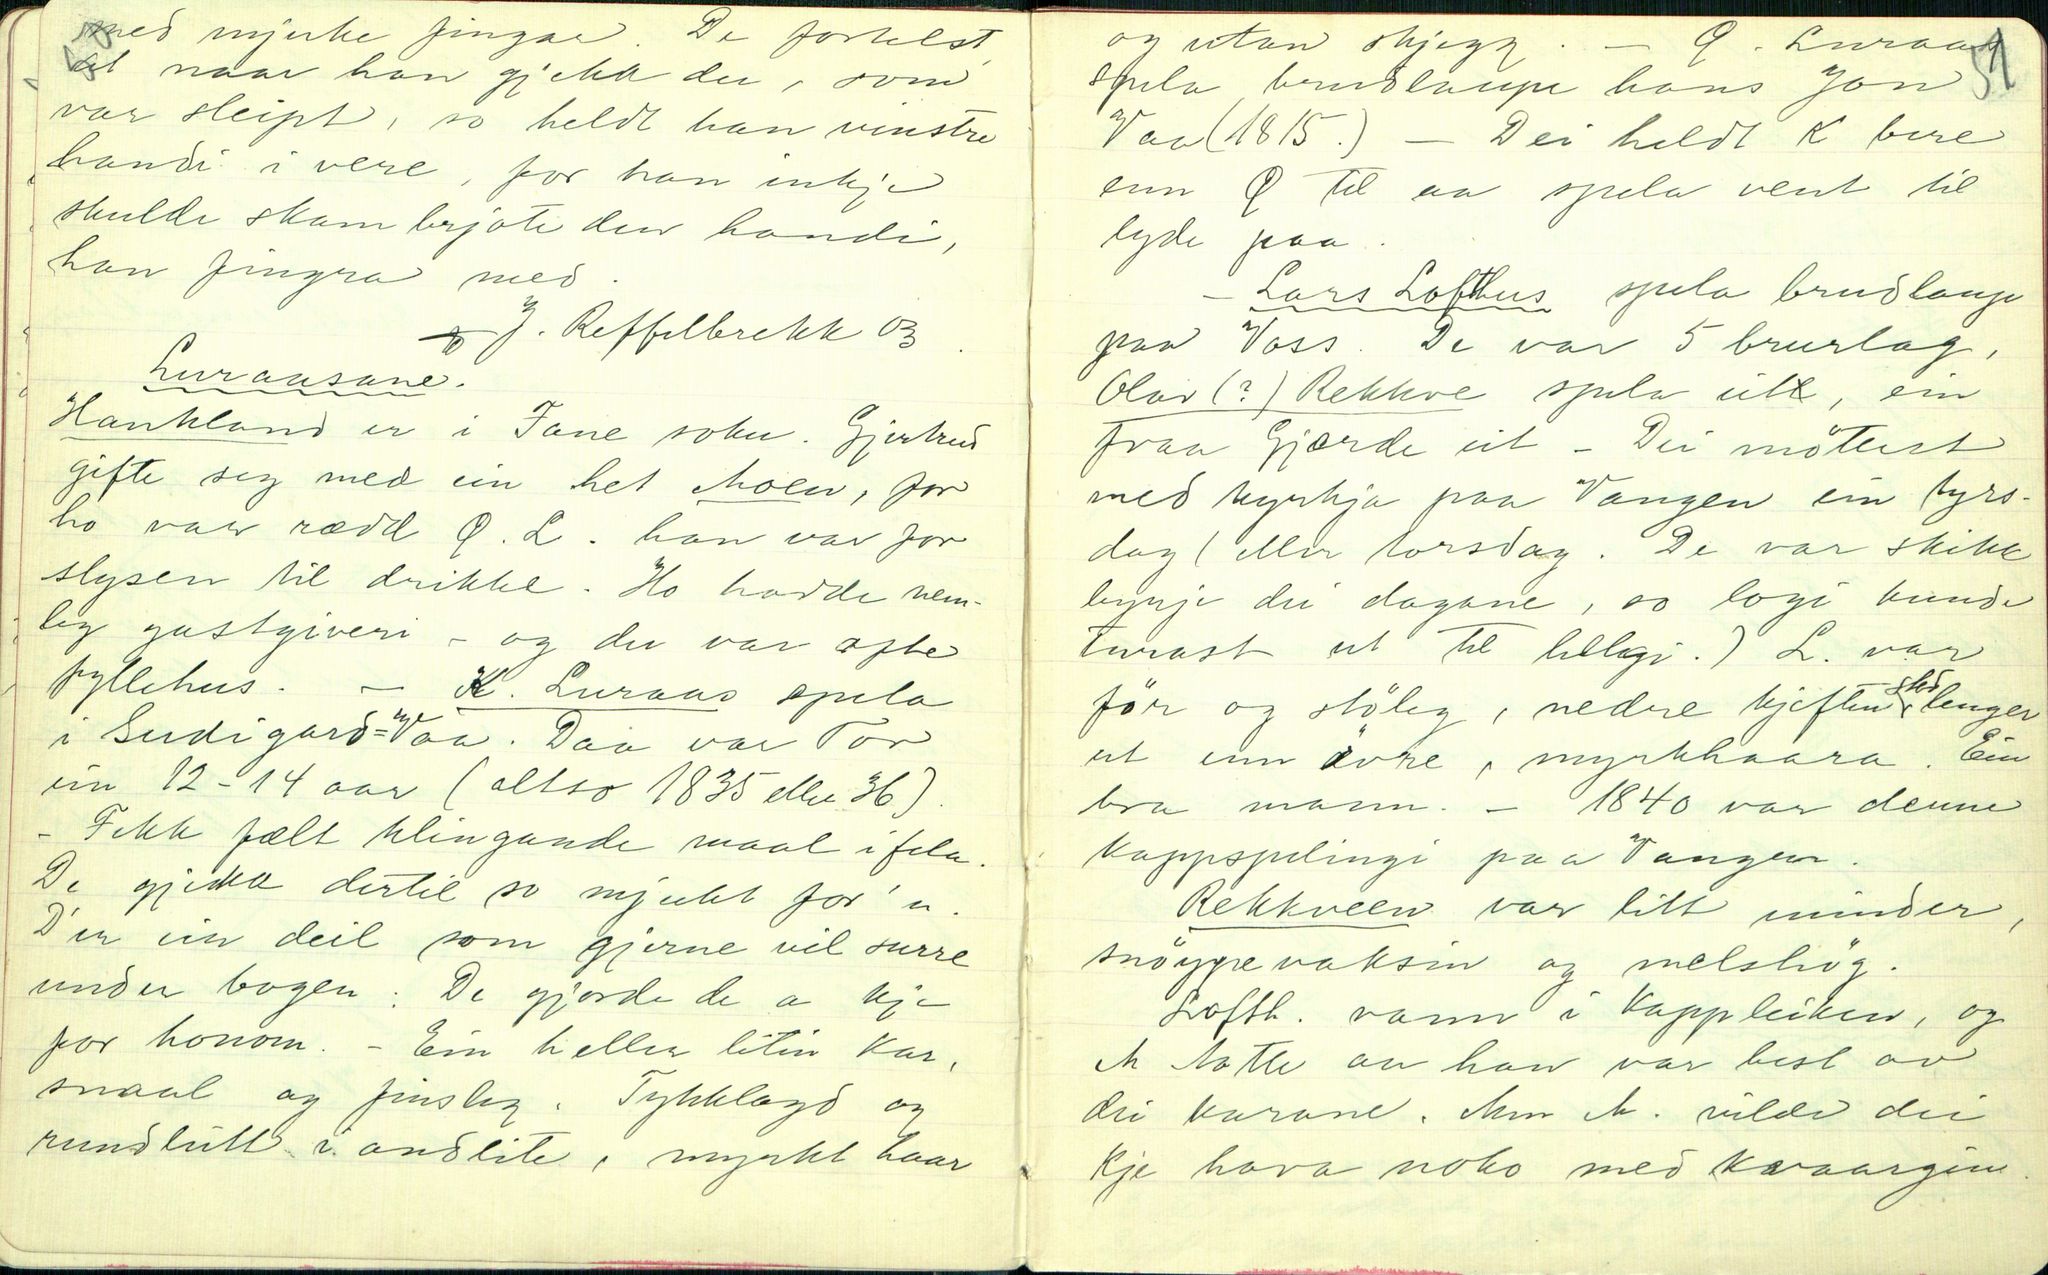 med mjuke fingar. De fortelst,
at naar han gjekk der, som
var sleipt, so heldt han vinstre
handi i vere, for han inkje
skulde skambrjote den handi,
han fingra med.
J. Reffelbrekk 03.
Luraasane.
Haukland er i Fane sokn. Gjertrud
gifte seg med ein het Moen, for
ho var rædd Ø. L. han var for
slysen til drikke. Ho hadde nem-
leg gastgiveri - og der var ofte
fyllehus. — K. Luraas spela
i Sudigard=Vaa. Daa var Tor
ein 12-14 aar (altso 1835 elle 36).
- Fekk fælt klingande maal i fela.
De gjekk dertil so mjukt for 'n.
D'er ein deil som gjerne vil surre
under bogen: De gjorde de a kje
for honom. - Ein heller liten kar,
smaal og finsleg. Tykklagd og
rundlitt i andlite, myrkt haar
51
og utan skjegg. — Ø. Luraas
spela brudlaupe hans Jon
Vaa (1815.) — Dei heldt K bere
enn Ø til aa spela vent til
lyde paa.
- Lars Lofthus spela brudlaup
paa Voss. De var 5 brurlag,
Olav (?) Rekkve spela eitt, ein
fraa Gjærde eit - Dei möttest
med kyrkja paa Vangen ein tyrs-
dag (eller torsdag. De var skikk
bynje dei dagane, so logi kunde
turast ut til helgi.) L. var
för og stöleg, nedre kjeften stod lenger
ut enn övre, myrkhaara. Ein
bra mann. - 1840 var denne
kappspelingi paa Vangen.
Rekkveen var litt minder,
snöggvaksin og melshög.
Lofth. vann i kappleiken, og
M matte an han var best av
dei karane. Men M. vilde dei
kje hava noko med kvaargine.